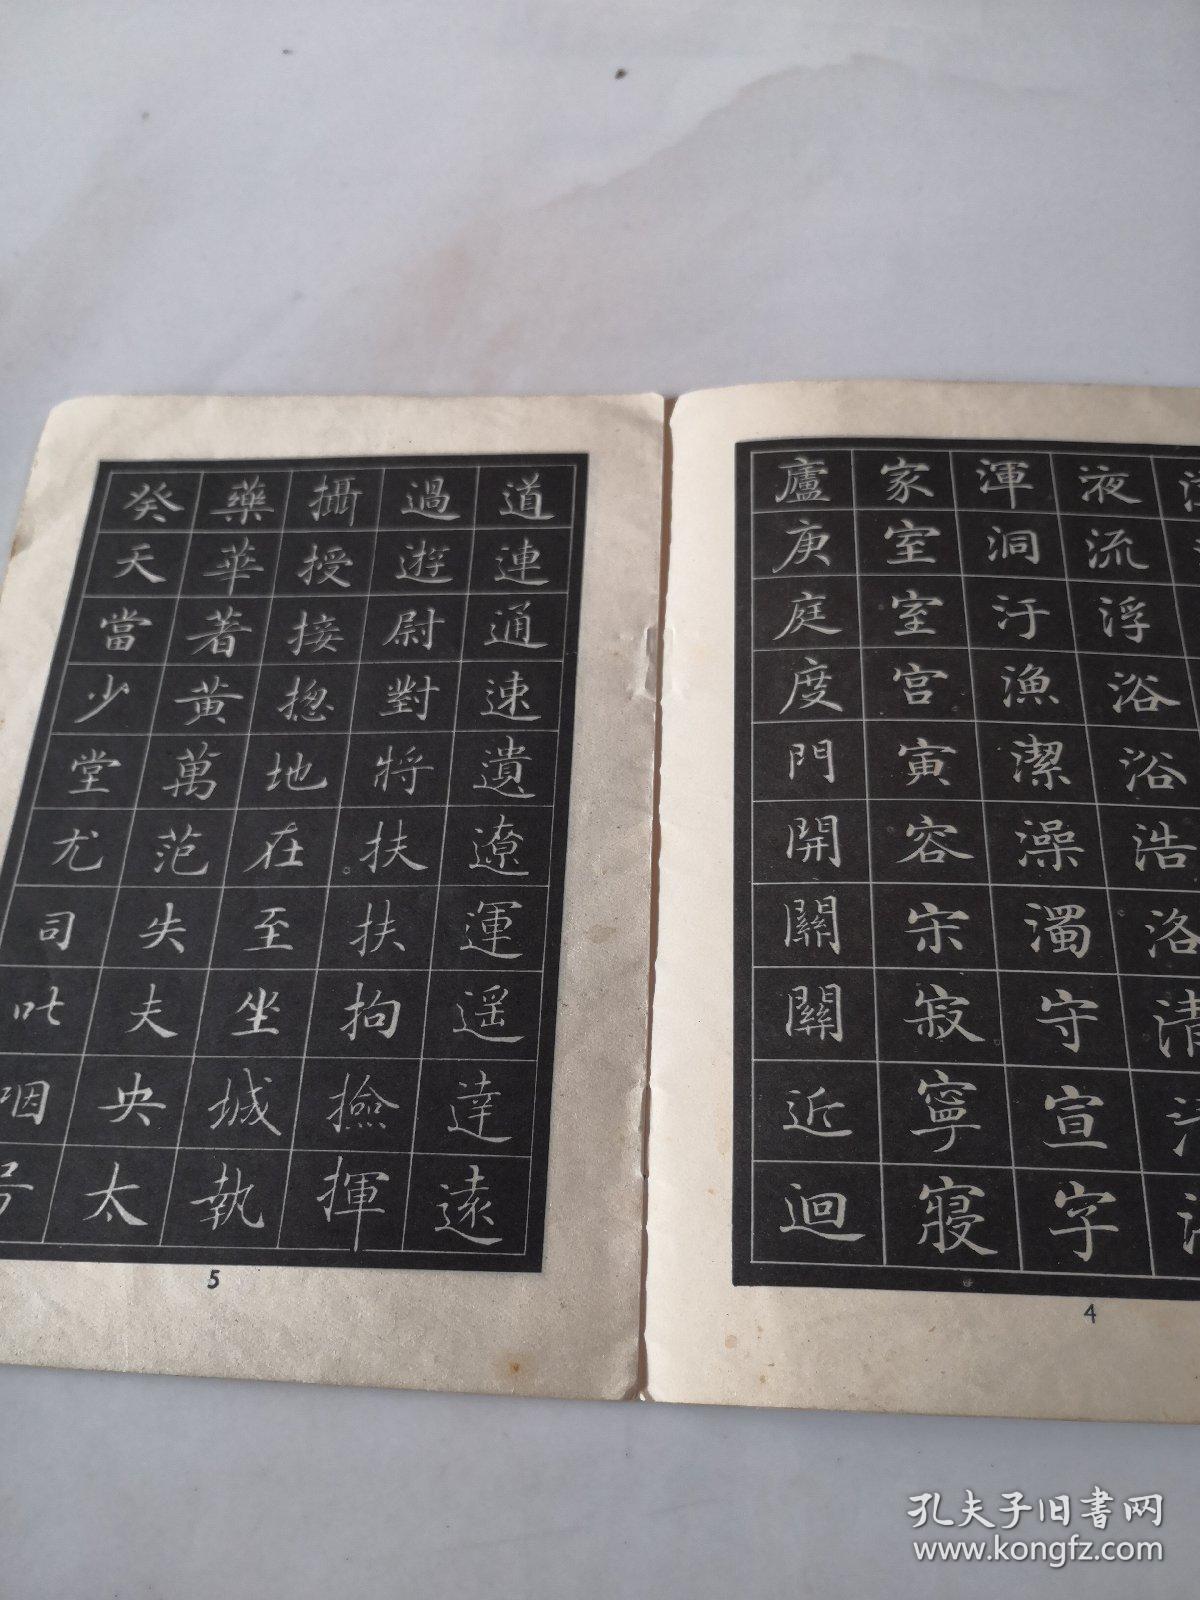 液流浮浴浴浩洛清
渾洞汙漁潔澡濁守宣字
家室室宫寅容宋寂寧寢
廬庚庭度門開關關近迴
4
道連通速遺遼運遥達遠
過遊尉對將扶扶拘撿揮
攝授接揔地在至坐城執
藥華著黄萬范失夫央太
癸天當少堂尤司吐咽号
5
孔夫子旧书网
www.kongfz.com